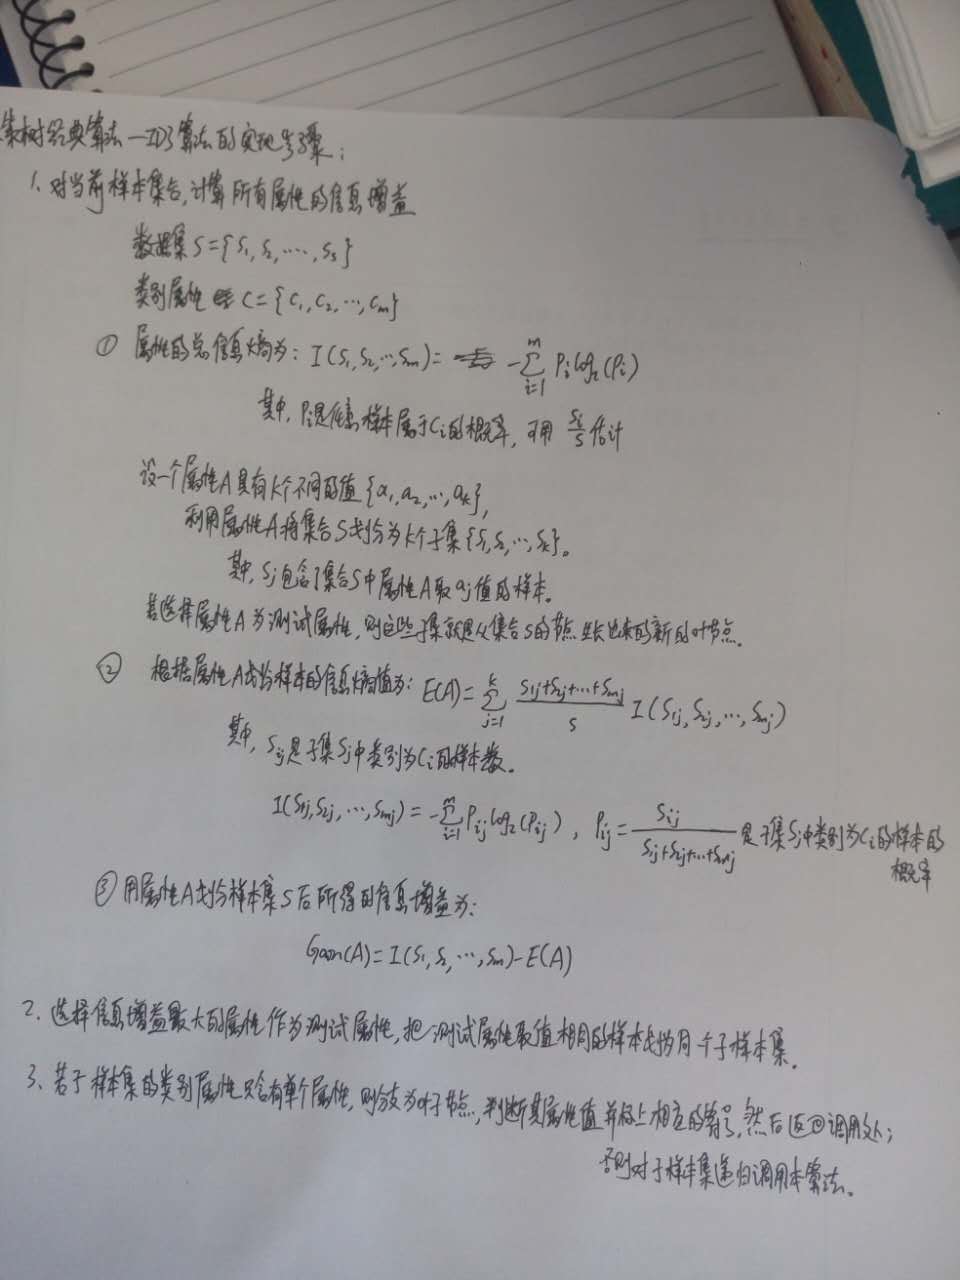 策树经典算法—ID3算法的实现步骤：
1、对当前样本集合，计算所有属性的信息增益
数据集 S={S₁, S₂, ····, Sₛ}
类别属性 C={C₁, C₂, ···, Cₘ}
① 属性的总信息熵为：I(S₁, S₂, ···, Sₘ)= -∑_{i=1}^{m} Pᵢ log₂(Pᵢ)
其中，Pᵢ是任意样本属于Cᵢ的概率，可用 Sᵢ/S 估计
设一个属性A具有k个不同的值{a₁, a₂, ···, aₖ}，
利用属性A将集合S划分为k个子集{S₁, S₂, ···, Sₖ}。
其中，Sⱼ包含了集合S中属性A取aⱼ值的样本。
若选择属性A为测试属性，则这些子集就是从集合S的节点生长出来的新的叶节点。
② 根据属性A划分样本的信息熵值为：E(A)=∑_{j=1}^{k} (S₁ⱼ+S₂ⱼ+···+Sₘⱼ)/S I(S₁ⱼ, S₂ⱼ, ···, Sₘⱼ)
其中，Sᵢⱼ是子集Sⱼ中类别为Cᵢ的样本数。
I(S₁ⱼ, S₂ⱼ, ···, Sₘⱼ)=-∑_{i=1}^{m} Pᵢⱼ log₂(Pᵢⱼ)，Pᵢⱼ= Sᵢⱼ/(S₁ⱼ+S₂ⱼ+···+Sₘⱼ) 是子集Sⱼ中类别为Cᵢ的样本的
概率
③ 用属性A划分样本集S后所得的信息增益为：
Gain(A)=I(S₁, S₂, ···, Sₘ)-E(A)
2、选择信息增益最大的属性作为测试属性，把测试属性取值相同的样本划为同一个子样本集。
3、若子样本集的类别属性只含有单个属性，则分支为叶子节点，判断其属性值并标上相应的符号，然后返回调用处；
否则对子样本集递归调用本算法。